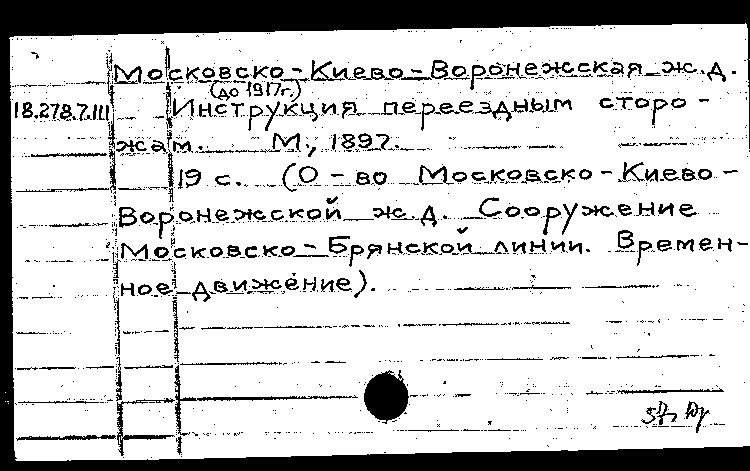 Московско-Киево-Воронежская ж.д.
(до 1917г.)
18.278.7.III Инструкция переездным сторо-
жам. М., 1897.
19 с. (О-во Московско-Киево-
Воронежской ж.д. Сооружение
Московско-Брянской линии. Времен-
ное движение).